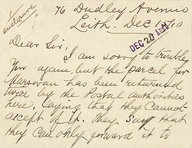 76 Dudley Avenue
Leith. Dec
DEC 20
Dear Sir,
I am sorry to trouble
you again, but the parcel for
Marsovan has been returned
twice by the Postal authorities
here, saying that they cannot
accept of it. They say that
they can only forward it to